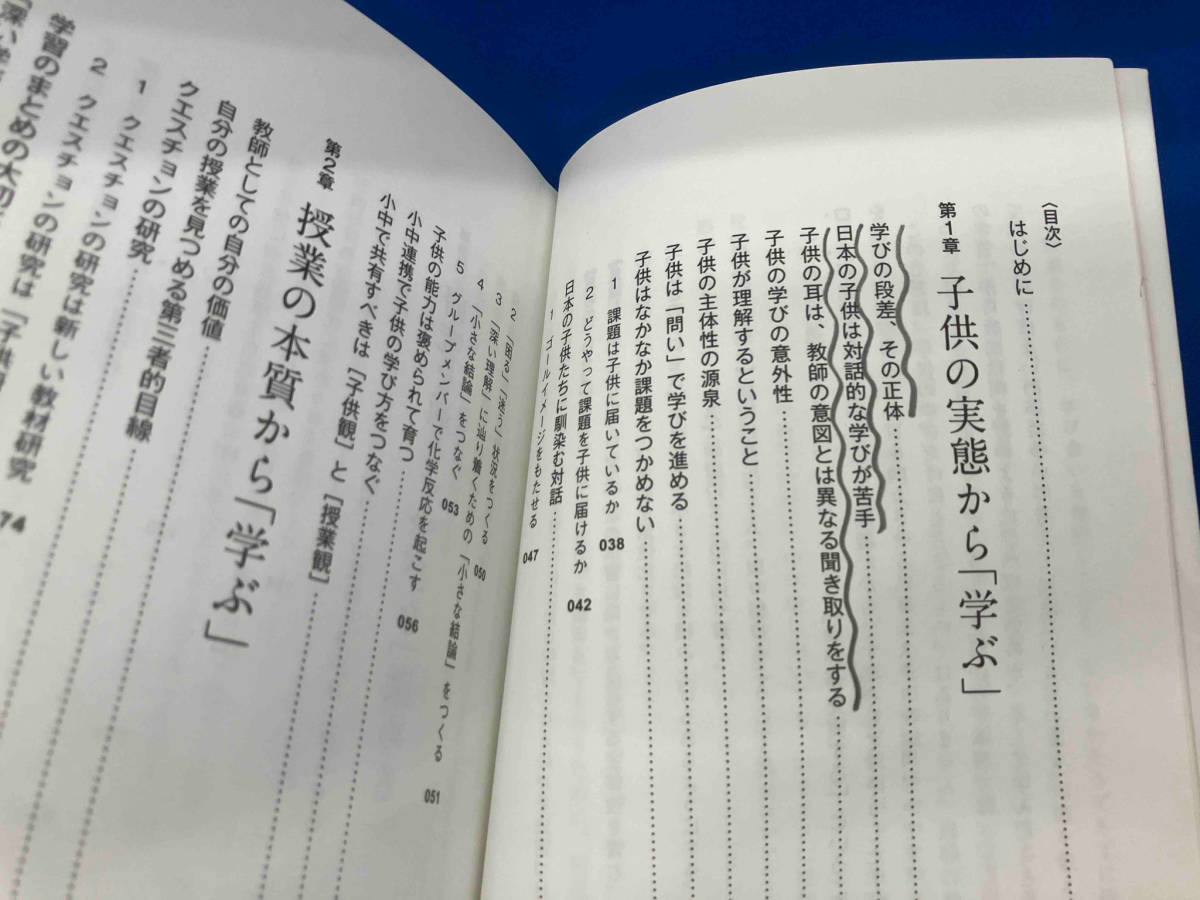 〈目次〉
はじめに
第1章 子供の実態から「学ぶ」
学びの段差、その正体
日本の子供は対話的な学びが苦手
子供の耳は、教師の意図とは異なる聞き取りをする
子供の学びの意外性
子供が理解するということ
子供の主体性の源泉
子供は「問い」で学びを進める
子供はなかなか課題をつかめない
1 課題は子供に届いているか 038
2 どうやって課題を子供に届けるか 042
日本の子供たちに馴染む対話
1 ゴールイメージをもたせる 047
2 「困る」「迷う」状況をつくる 050
3 「深い理解」に辿り着くための「小さな結論」をつくる 051
4 「小さな結論」をつなぐ 053
5 グループメンバーで化学反応を起こす 056
子供の能力は褒められて育つ
小中連携で子供の学び方をつなぐ
小中で共有すべきは[子供観]と[授業観]
第2章 授業の本質から「学ぶ」
教師としての自分の価値
自分の授業を見つめる第三者的目線
クエスチョンの研究
1 クエスチョンの研究は新しい教材研究 74
2 クエスチョンの研究は「子供
学習のまとめの大切
「深い学